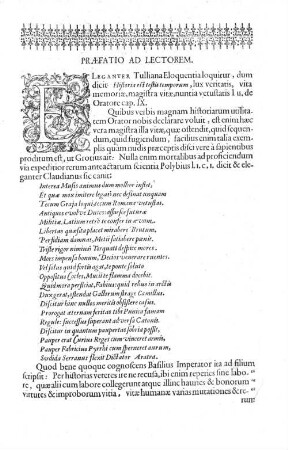 PRÆFATIO AD LECTOREM.
ELEGANTER Tulliana Eloquentia loquitur, dum
dicit Historia est testis temporum, lux veritatis, vita
memoriæ, magistra vitæ, nuntia vetustatis l. II, de
Oratore cap. IX.
Quibus verbis magnam historiarum utilita-
tem Orator nobis declarare voluit, est enim hæc
vera magistra illa vitæ, quæ ostendit, quid sequen-
dum, quid fugiendum, facilius enim talia exem-
plis quam midis præceptis disci vere à sapientibus
proditum est, ut Grotius ait: Nulla enim mortalibus ad proficiendum
via expeditior rerum anteactarum scientia Polybius l. I, c. I. dicit & ele-
ganter Claudianus sic canit:
Interea Musis animus dum mollior instet,
Et quæ mox imitere legas nec desinat unquam
Tecum Graja loqui tecum Romana vetustas.
Antiquos evolve Duces assuesce futuræ
Militiæ, Latium retro te confer in ævum,
Libertas quæsita placet mirabere Brutum,
Perfidiam damnas, Metii satiabere pœnis,
Triste rigor nimius Torquati despice mores.
Mors impensa bonum, Decios venerare ruentes.
Vel solus quid fortis agat, te ponte soluto
Oppositus Cocles, Mucii te flamma docebit.
Quid mora perficiat, Fabius: quid rebus in arctis
Dux gerat, ostendat Gallorum strage Camillus.
Discitur hinc nullos meritis obsistere casus.
Prorogat æternam feritas tibi Punica famam
Regule: successus superant adversa Catonis.
Discitur in quantum paupertas sobria possit,
Pauper erat Curius Reges cum vinceret armis,
Pauper Fabricius Pyrrhi cum sperneret aurum,
Sordida Serranus flexit Dictator Aratra.
Quod bene quoque cognoscens Basilius Imperator ita ad filium
scripsit: Per historias veteres ire ne recusa, ibi enim reperies sine labo-
re, quæ alii cum labore collegerunt atque illinc hauries & bonorum
virtutes & improborum vitia, vitæ humanæ varias mutationes & re-
rum